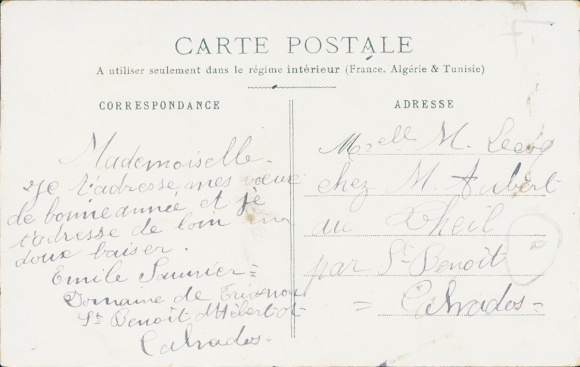 CARTE POSTALE
A utiliser seulement dans le régime intérieur (France, Algérie & Tunisie)
CORRESPONDANCE
Mademoiselle.
Je t'adresse mes vœux
de bonne année et je
t'adresse de loin un
doux baiser.
Emile Saunier =
Domaine de
St Benoît d'Hébertot
Calvados.
ADRESSE
Melle M.
chez M. Aubert
au Theil
par St Benoît
= Calvados =